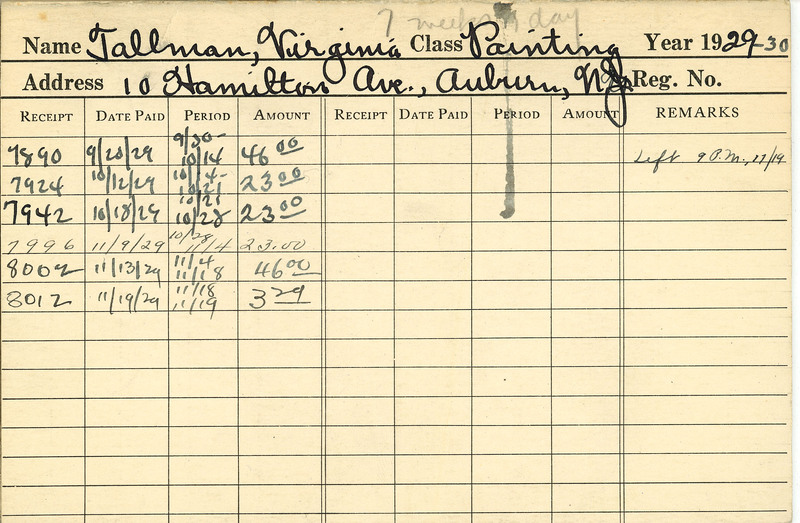 7 weeks 1 day
Name Tallman, Virginia Class Painting Year 1929-30
Address 10 Hamilton Ave., Auburn, N.Y. Reg. No.
RECEIPT DATE PAID PERIOD AMOUNT RECEIPT DATE PAID PERIOD AMOUNT REMARKS
7890 9/20/29 9/30- 10/14 46 00 Left 9 P.M., 11/19
7924 10/12/29 10/14- 10/21 23 00
7942 10/18/29 10/21 10/28 23 00
7996 11/9/29 10/28 11/4 23.00
8002 11/13/29 11/4 11/18 46 00
8012 11/19/29 11/18 11/19 3 29